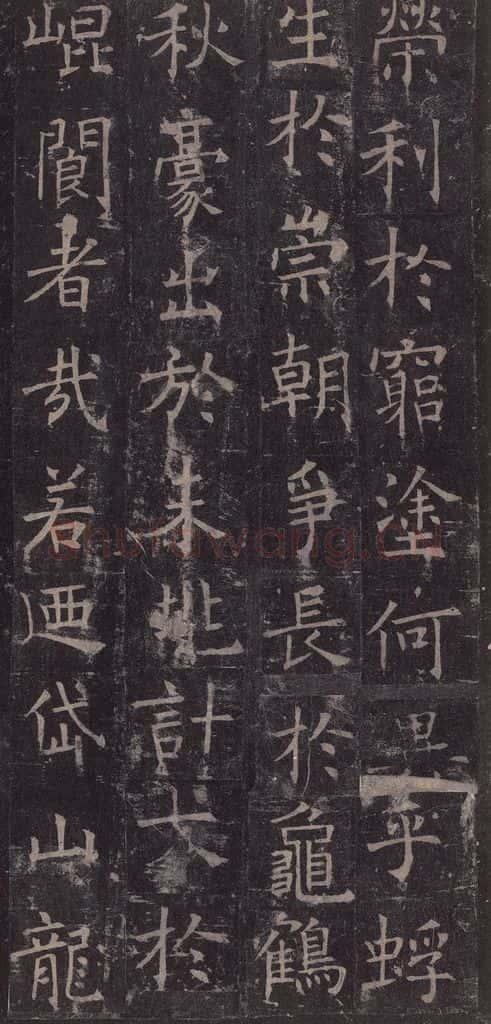 榮利於窮塗何異乎蜉
生於崇朝爭長於龜鶴
秋豪出於未兆計大於
崐閬者哉若迺岱山龍
Shufawang.CN